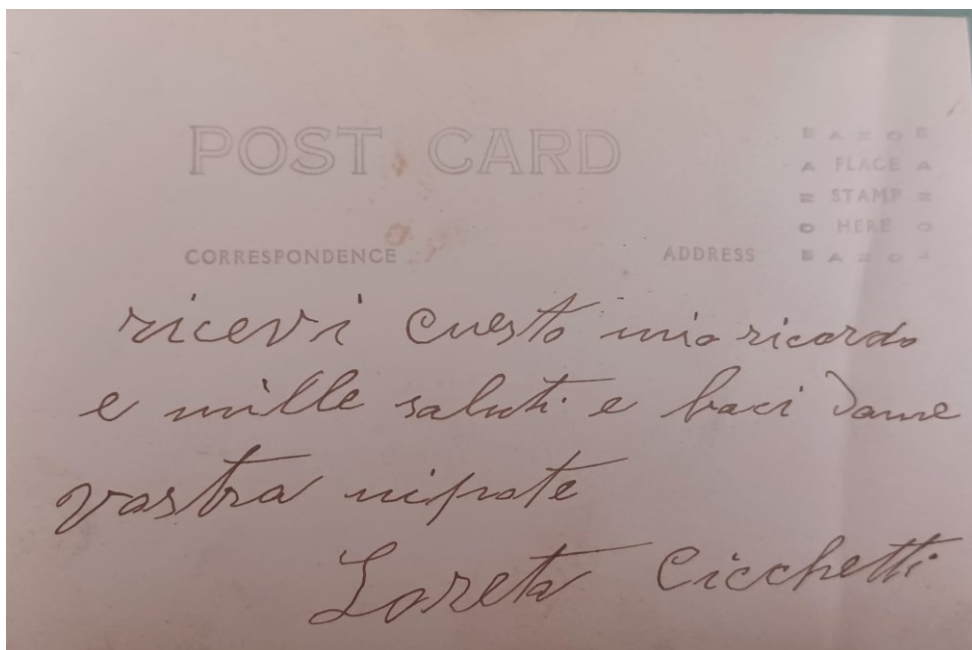 POST CARD
E A Z O E
A PLACE A
Z STAMP Z
O HERE O
E A Z O E
CORRESPONDENCE
ADDRESS
ricevi cuesto mio ricordo
e mille saluti e baci dame
vostra nipote
Loreta Cicchetti